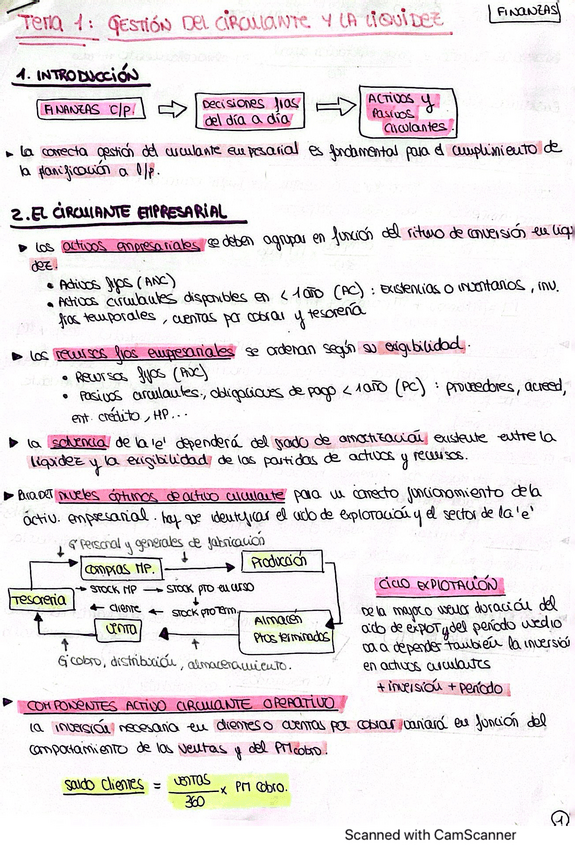 FINANZAS
TEMA 1: GESTIÓN DEL CIRCULANTE Y LA LIQUIDEZ
1. INTRODUCCIÓN
FINANZAS C/P
Decisiones fras del día a día
ACTIVOS y Pasivos Circulantes
▸ La correcta gestión del circulante empresarial es fundamental para el cumplimiento de
la planificación a l/p.
2. EL CIRCULANTE EMPRESARIAL
▸ Los activos empresariales se deben agrupar en función del ritmo de conversión en liqui
dez.
• Activos fijos (ANC)
• Activos circulantes disponibles en < 1 año (AC): existencias o inventarios, inv.
fras temporales, cuentas por cobrar y tesorería
▸ Los recursos fros empresariales se ordenan según su exigibilidad.
• Recursos fijos
• Pasivos circulantes, obligaciones de pago < 1 año (PC): proveedores, acreed,
ent. crédito, HP...
▸ La solvencia de la 'e' dependerá del grado de existente entre la
liquidez y la exigibilidad de las partidas de activos y recursos.
▸ niveles óptimos de activo circulante para un correcto funcionamiento de la
activ. empresarial. hay que identificar el ciclo de explotación y el sector de la 'e'
↓ G Personal y generales de fabricación
compras MP.
Producción
Tesorería
STOCK MP → STOCK PTO EN CURSO
← cliente ← STOCK PTO TERM.
VENTA
Almacén Ptos terminados
G cobro, distribución, almacenamiento.
CICLO EXPLOTACIÓN
De la mayor o menor duración del
ciclo de EXPLOT y del período medio
va a depender también la inversión
en activos circulantes
+ inversión + período
▸ COMPONENTES ACTIVO CIRCULANTE OPERATIVO
La inversión necesaria en clientes o cuentas por cobrar variará en función del
comportamiento de las ventas y del PM cobro.
saldo clientes = VENTAS / 360 x PM cobro.
1
Scanned with CamScanner